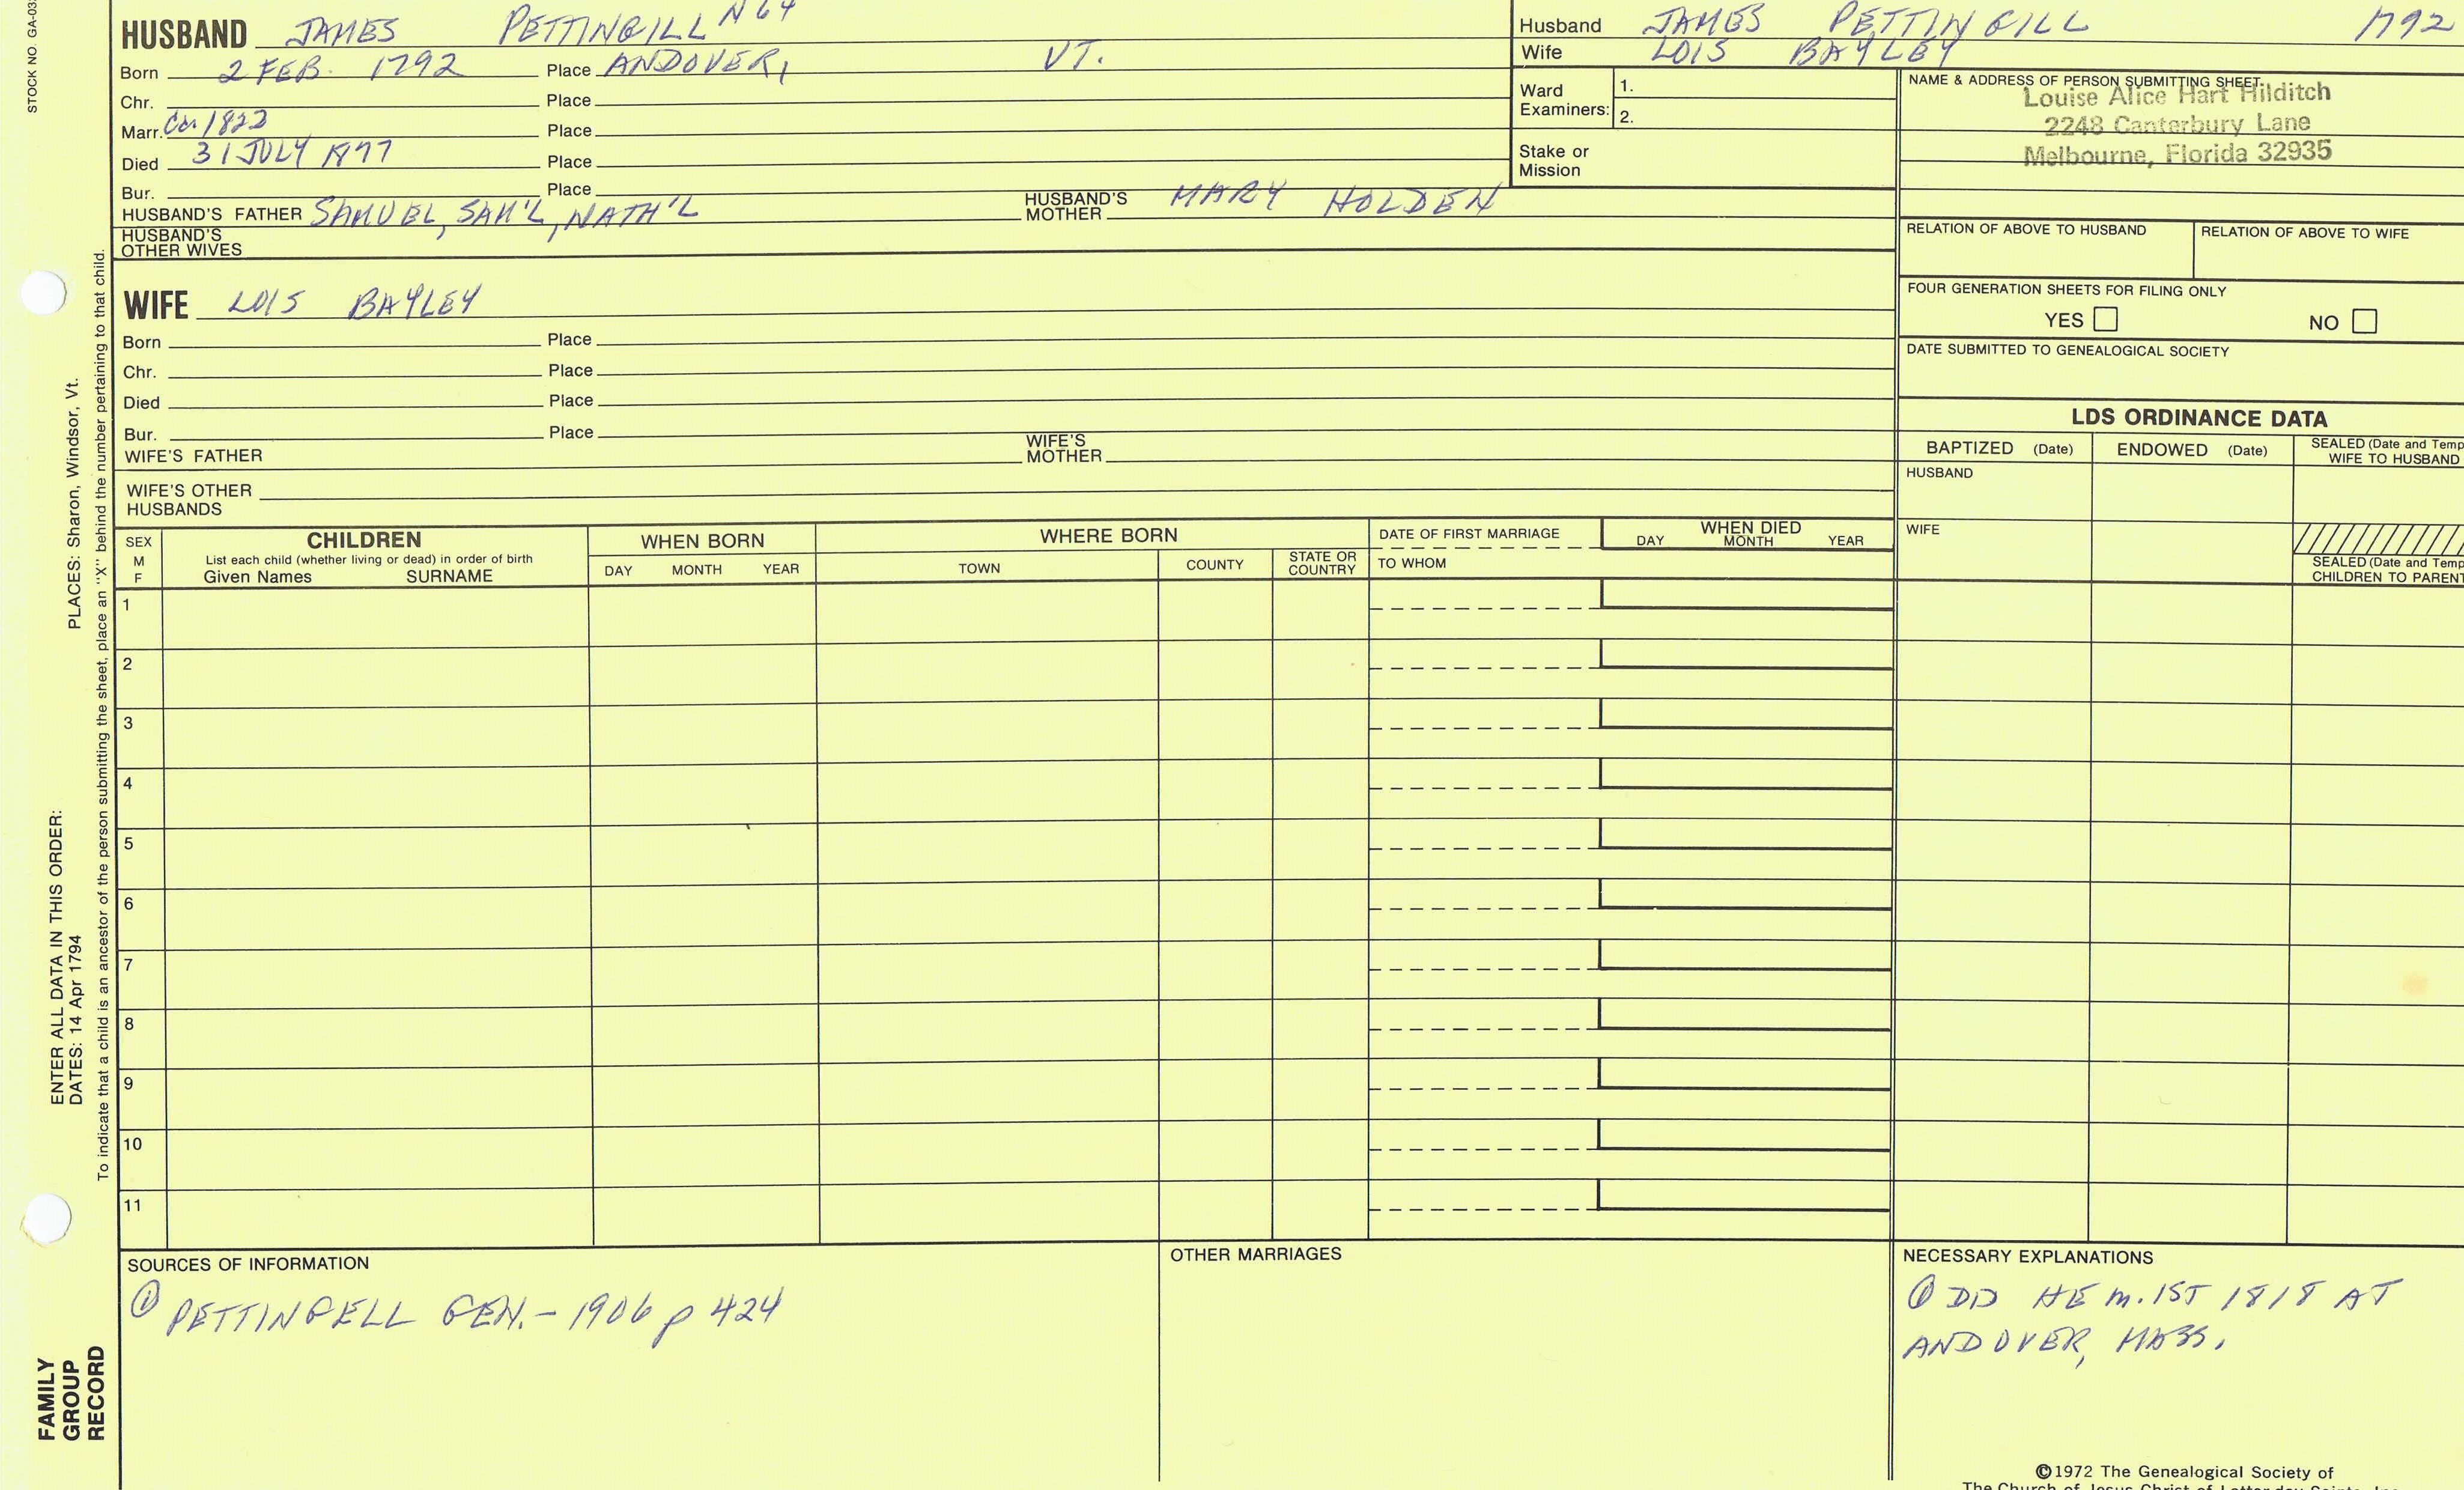 STOCK NO. GA-03
HUSBAND JAMES PETTINGILL N64
Born 2 FEB. 1792 Place ANDOVER, VT.
Chr. Place
Marr. Ca 1822 Place
Died 31 JULY Place
Bur. Place
HUSBAND'S FATHER SAMUEL, SAM'L, NATH'L HUSBAND'S MOTHER MARY HOLDEN
HUSBAND'S OTHER WIVES
Husband JAMES PETTINGILL 1792
Wife LOIS BAYLEY
Ward Examiners: 1.
2.
Stake or Mission
NAME & ADDRESS OF PERSON SUBMITTING SHEET
Louise Alice Hart Hilditch
2248 Canterbury Lane
Melbourne, Florida 32935
RELATION OF ABOVE TO HUSBAND RELATION OF ABOVE TO WIFE
FOUR GENERATION SHEETS FOR FILING ONLY
YES NO
DATE SUBMITTED TO GENEALOGICAL SOCIETY
WIFE LOIS BAYLEY
Born Place
Chr. Place
Died Place
Bur. Place
WIFE'S FATHER WIFE'S MOTHER
WIFE'S OTHER HUSBANDS
LDS ORDINANCE DATA
BAPTIZED (Date) ENDOWED (Date) SEALED (Date and Temp
WIFE TO HUSBAND
HUSBAND
WIFE
SEALED (Date and Temp
CHILDREN TO PARENT
SEX
M
F
CHILDREN
List each child (whether living or dead) in order of birth
Given Names SURNAME
WHEN BORN
DAY MONTH YEAR
WHERE BORN
TOWN COUNTY STATE OR COUNTRY
DATE OF FIRST MARRIAGE
TO WHOM
WHEN DIED
DAY MONTH YEAR
1
2
3
4
5
6
7
8
9
10
11
SOURCES OF INFORMATION
① PETTINGELL GEN. - 1906 p 424
OTHER MARRIAGES
NECESSARY EXPLANATIONS
① DD HE m. 1ST 1818 AT
ANDOVER, MASS.
©1972 The Genealogical Society of
The Church of Jesus Christ of Latter-day Saints, Inc
PLACES: Sharon, Windsor, Vt.
ENTER ALL DATA IN THIS ORDER:
DATES: 14 Apr 1794
To indicate that a child is an ancestor of the person submitting the sheet, place an "X" behind the number pertaining to that child.
FAMILY
GROUP
RECORD